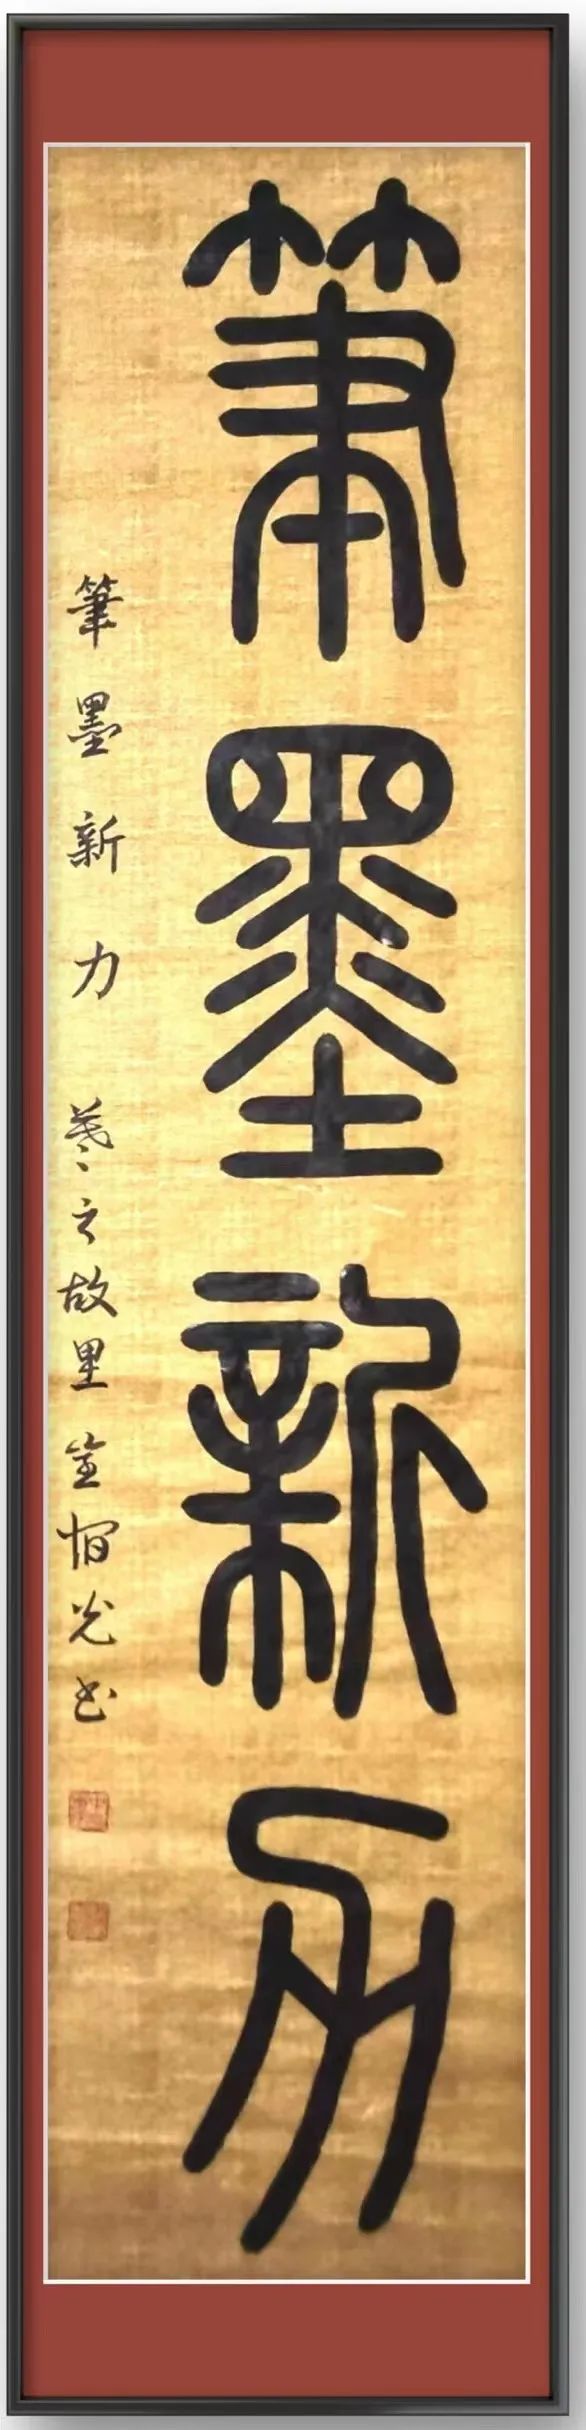 筆墨新力
筆墨新力 羲之故里 光书